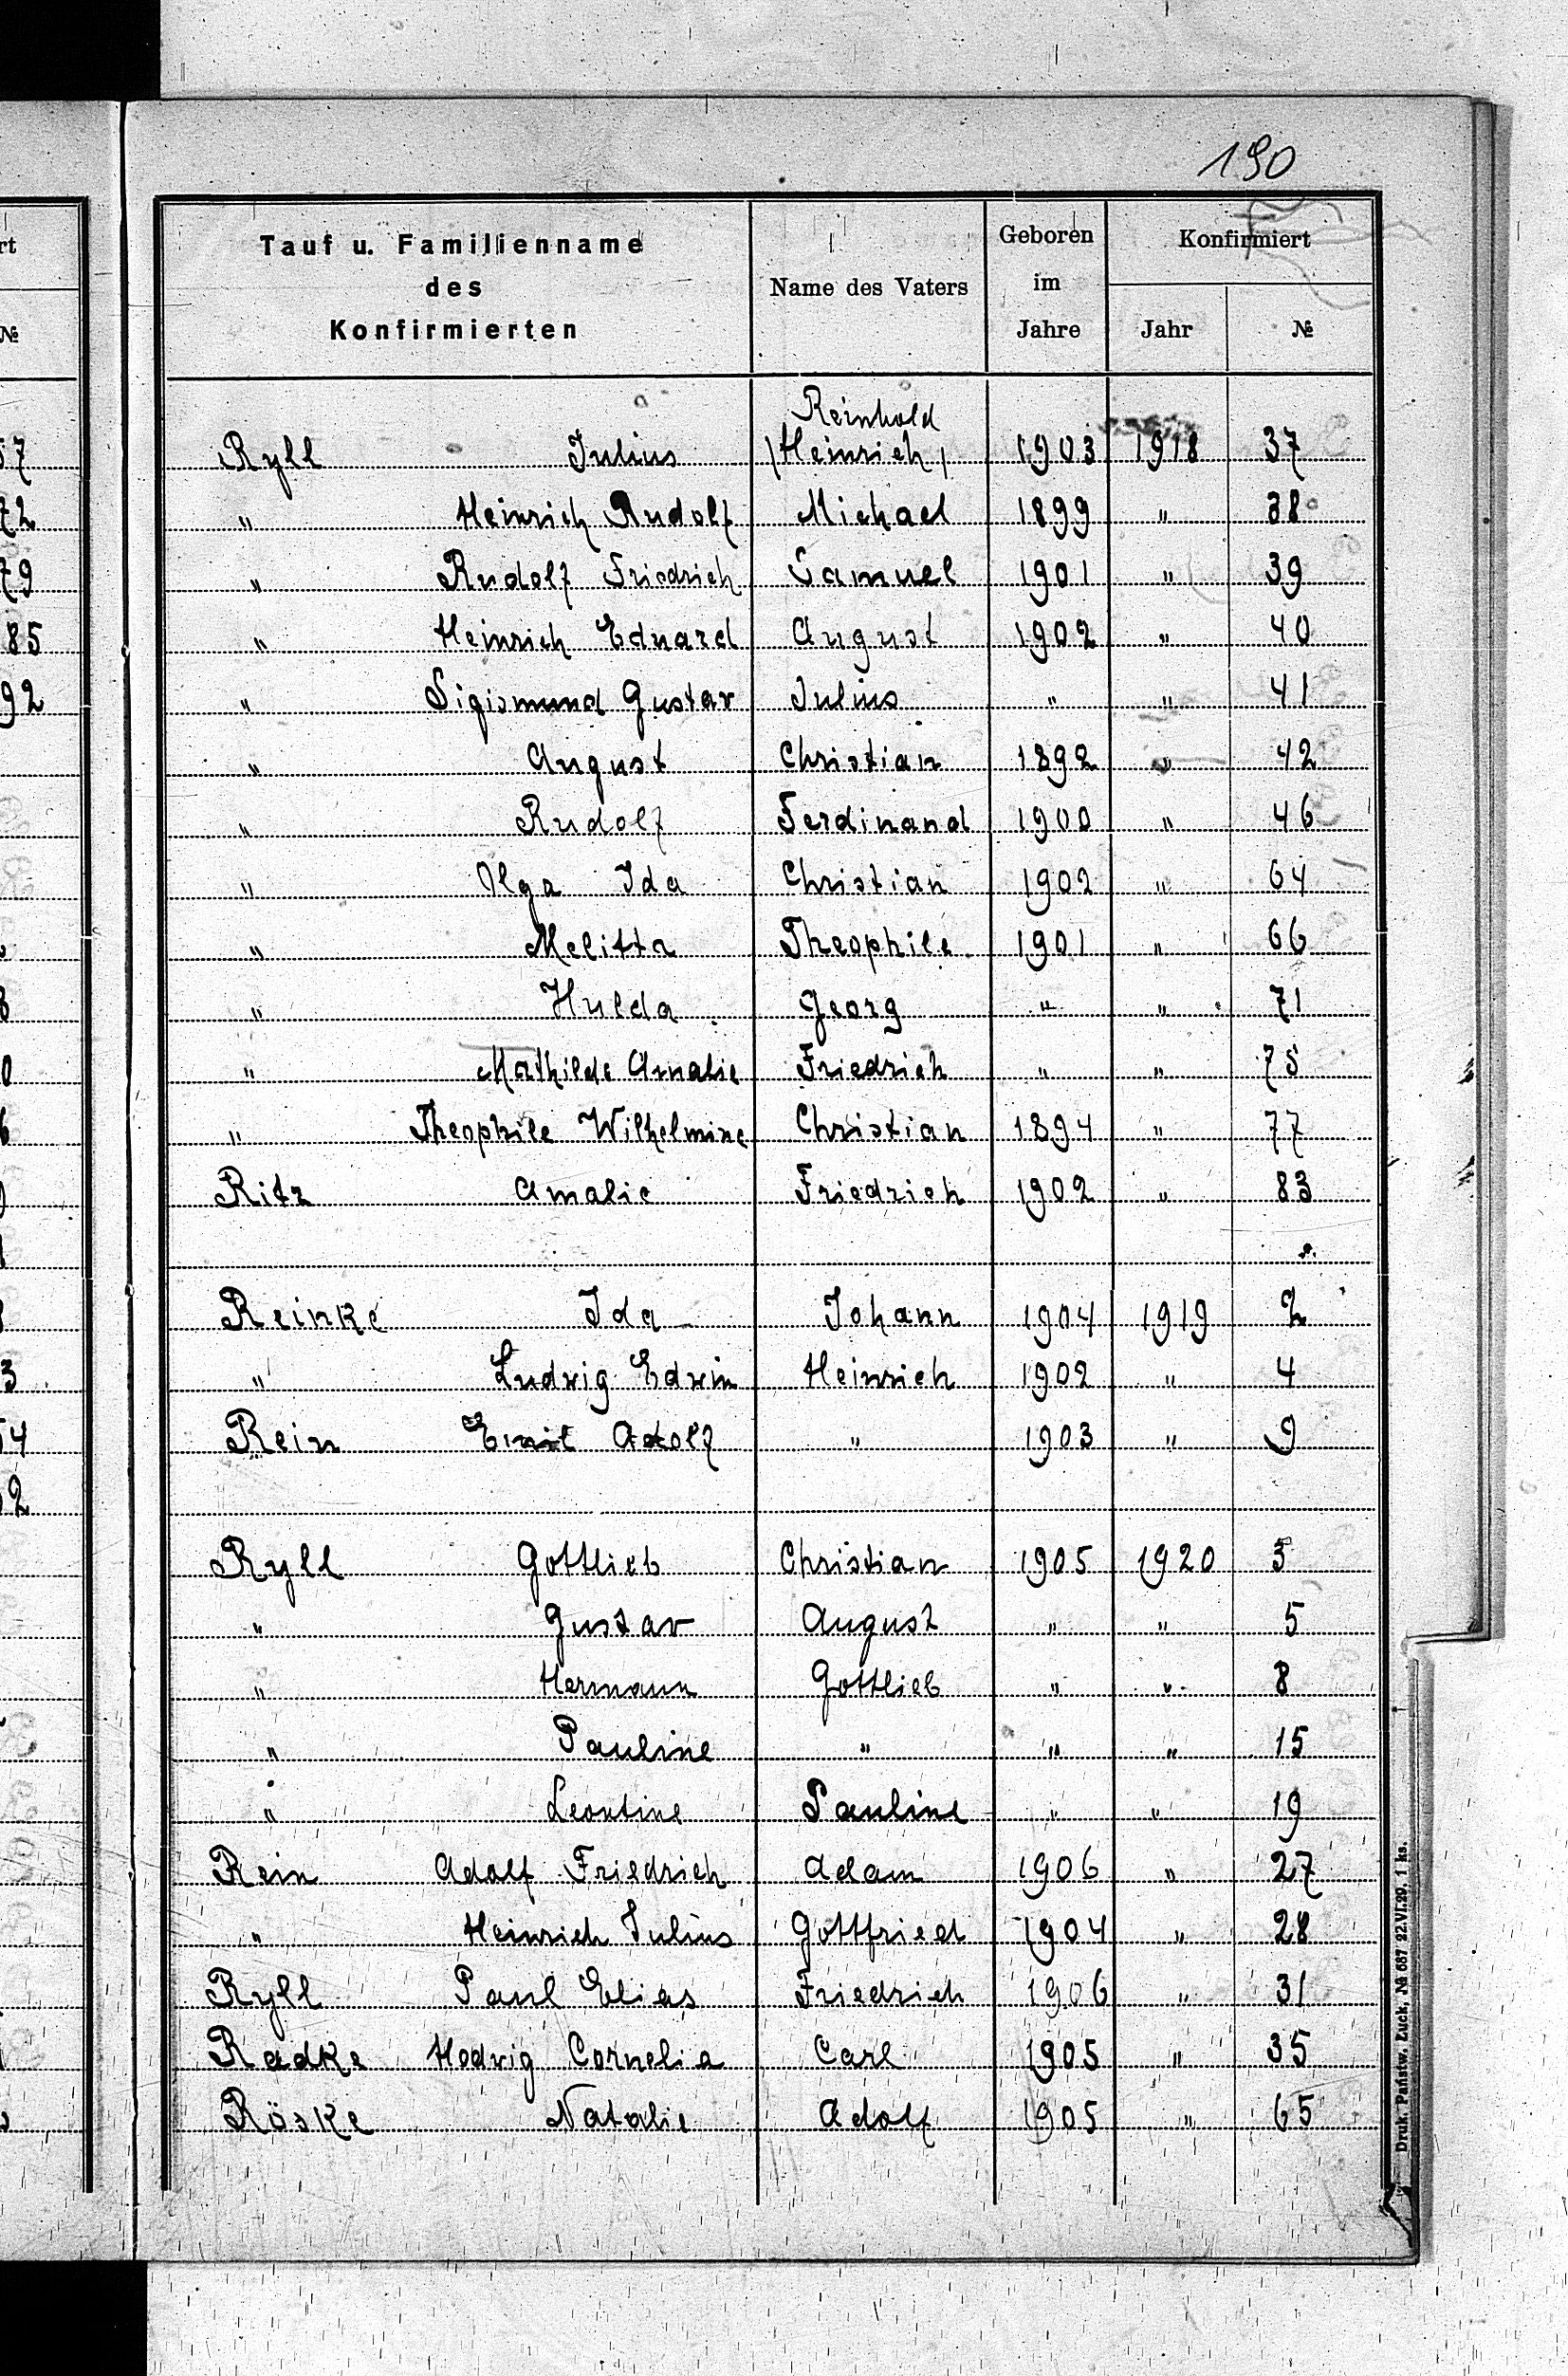 190
Tauf u. Familienname des Konfirmierten | Name des Vaters | Geboren im Jahre | Konfirmiert Jahr | №
Reinhold
Ryll Julius | (Heinrich) | 1903 | 1918 | 37
" Heinrich Rudolf | Michael | 1899 | " | 38
" Rudolf Friedrich | Samuel | 1901 | " | 39
" Heinrich Eduard | August | 1902 | " | 40
" Sigismund Gustav | Julius | " | " | 41
" August | Christian | 1892 | " | 42
" Rudolf | Ferdinand | 1900 | " | 46
" Olga Ida | Christian | 1902 | " | 64
" Melitta | Theophile | 1901 | " | 66
" Hulda | Georg | " | " | 71
" Mathilde Amalie | Friedrich | " | " | 75
" Theophile Wilhelmine | Christian | 1894 | " | 77
Ritz Amalie | Friedrich | 1902 | " | 83
Reinke Ida | Johann | 1904 | 1919 | 2
" Ludwig Edwin | Heinrich | 1902 | " | 4
Rein Emil Adolf | " | 1903 | " | 9
Ryll Gottlieb | Christian | 1905 | 1920 | 3
" Gustav | August | " | " | 5
" Hermann | Gottlieb | " | " | 8
" Pauline | " | " | " | 15
" Leontine | Pauline | " | " | 19
Rein Adolf Friedrich | Adam | 1906 | " | 27
" Heinrich Julius | Gottfried | 1904 | " | 28
Ryll Paul Elias | Friedrich | 1906 | " | 31
Radke Hedwig Cornelia | Carl | 1905 | " | 35
Röske Natalie | Adolf | 1905 | " | 65
Druk. Państw. Łuck, № 687 22.VI.29. 1 ks.
rt
№
57
72
79
85
92